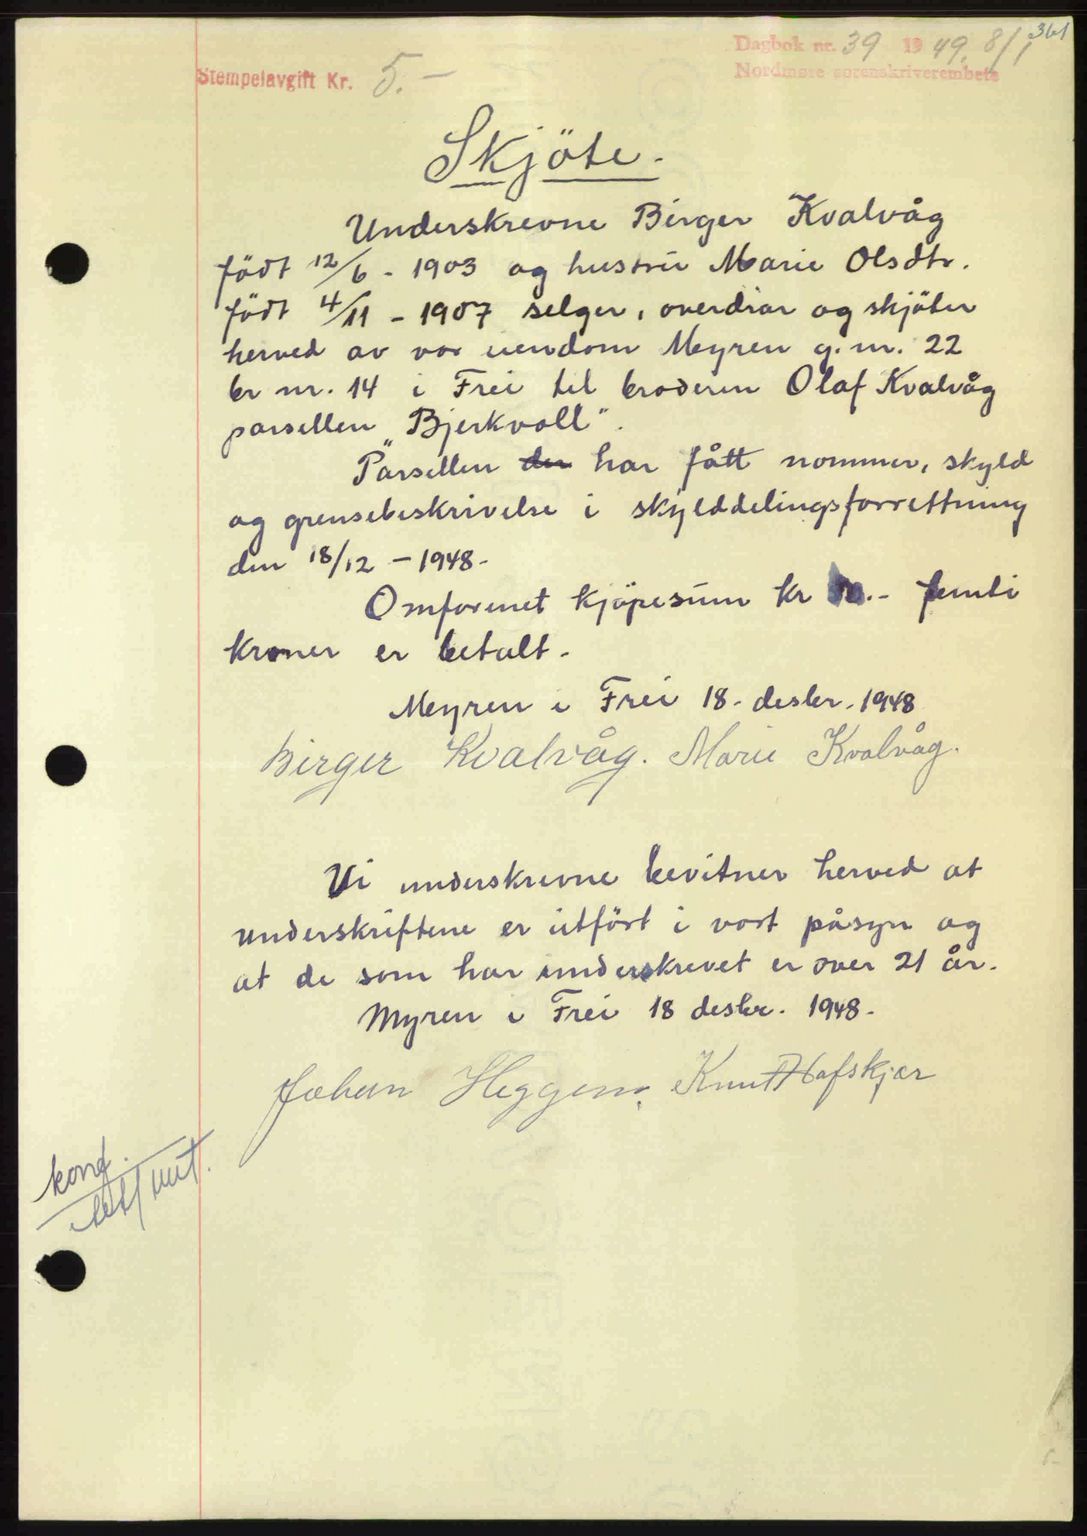 361
Dagbok nr. 39 1949, 8/1
Nordmøre sorenskriverembete
Stempelavgift Kr. 5.-
Skjöte.
Underskrevne Birger Kvalvåg
födt 12/6 - 1903 og hustru Marie Olsdtr.
födt 4/11 - 1907 selger, overdrar og skjöter
herved av vor eiendom Meyren g. nr. 22
br nr. 14 i Frei til broderen Olaf Kvalvåg
parsellen „Bjerkvoll".
Parsellen der har fått nommer, skyld
og grensebeskrivelse i skylddelingsforrettning
den 18/12 - 1948.
Omforenet kjöpesum kr .- femti
kroner er betalt.
Meyren i Frei 18. desbr. 1948
Birger Kvalvåg. Marie Kvalvåg.
Vi underskrevne bevitner herved at
underskriftene er utfört i vort påsyn og
at de som har underskrevet er over 21 år.
Myren i Frei 18 desbr. 1948.
Johan Heggem, Knut Hafskjær
konf.